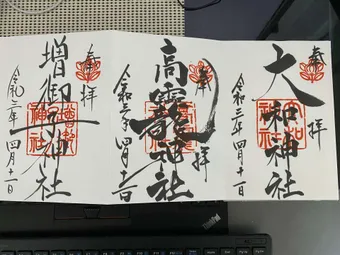 奉拝
大和神社
令和三年四月十一日
奉拝
高龗神社
令和三年四月十一日
奉拝
増御子神社
令和三年四月十一日
ThinkPad